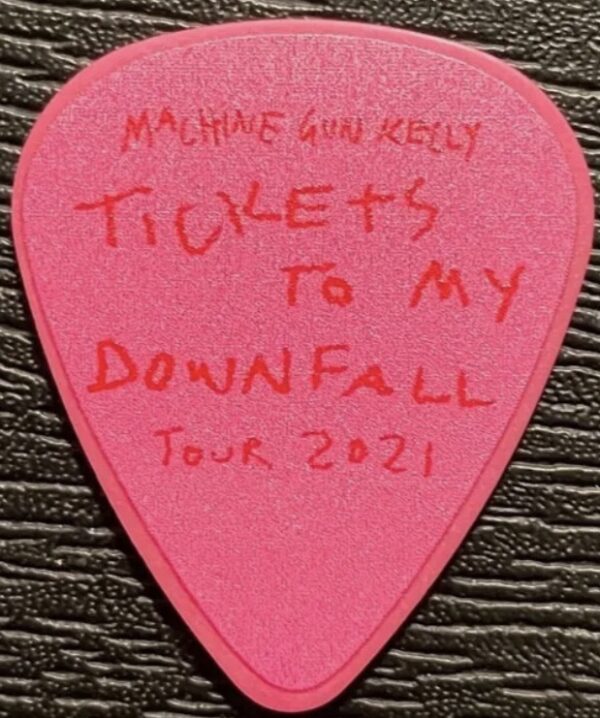 MACHINE GUN KELLY
TICKETS
TO MY
DOWNFALL
TOUR 2021